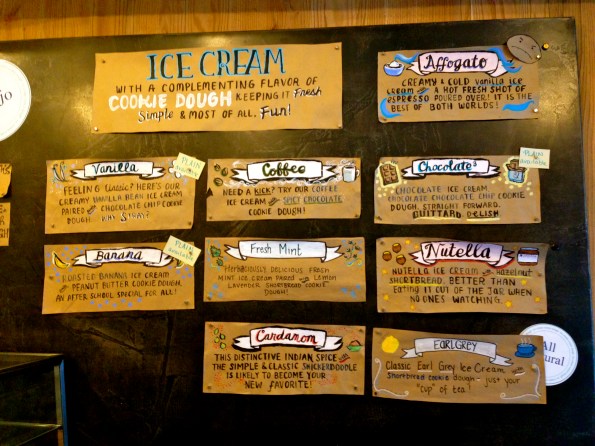 jo
ICE CREAM
WITH A COMPLEMENTING FLAVOR OF
COOKIE DOUGH KEEPING IT Fresh
Simple & MOST OF ALL, Fun!
Affogato
CREAMY & COLD Vanilla ICE
CREAM & A HOT FRESH SHOT OF
ESPRESSO POURED OVER! IT IS THE
BEST OF BOTH WORLDS!
Vanilla
PLAIN
FEELING Classic? HERE'S OUR
CREAMY VANILLA BEAN ICE CREAM
PAIRED CHOCOLATE CHIP COOKIE
DOUGH.
Coffee
NEED A KICK? TRY OUR COFFEE
ICE CREAM SPICY CHOCOLATE
COOKIE DOUGH!
Chocolate³
PLAIN
CHOCOLATE ICE CREAM
CHOCOLATE CHOCOLATE CHIP COOKIE
DOUGH. STRAIGHT FORWARD.
GUITTARD O-LISH
Banana
PLAIN
ROASTED BANANA ICE CREAM
PEANUT BUTTER COOKIE DOUGH,
AN AFTER SCHOOL SPECIAL FOR ALL!
Fresh Mint
HERBACIOUSLY DELICIOUS FRESH
MINT ICE CREAM PAIRED LEMON
LAVENDER SHORTBREAD COOKIE
DOUGH!
Nutella
NUTELLA ICE CREAM Hazelnut
SHORTBREAD. BETTER THAN
EATING IT OUT OF THE JAR WHEN
NO ONES WATCHING.
Cardamom
THIS DISTINCTIVE INDIAN SPICE
THE SIMPLE & CLASSIC SNICKERDOODLE
IS LIKELY TO BECOME YOUR
NEW FAVORITE!
EARL GREY
Classic Earl Grey Ice Cream
Shortbread cookie dough - just your
"cup" of tea!
All